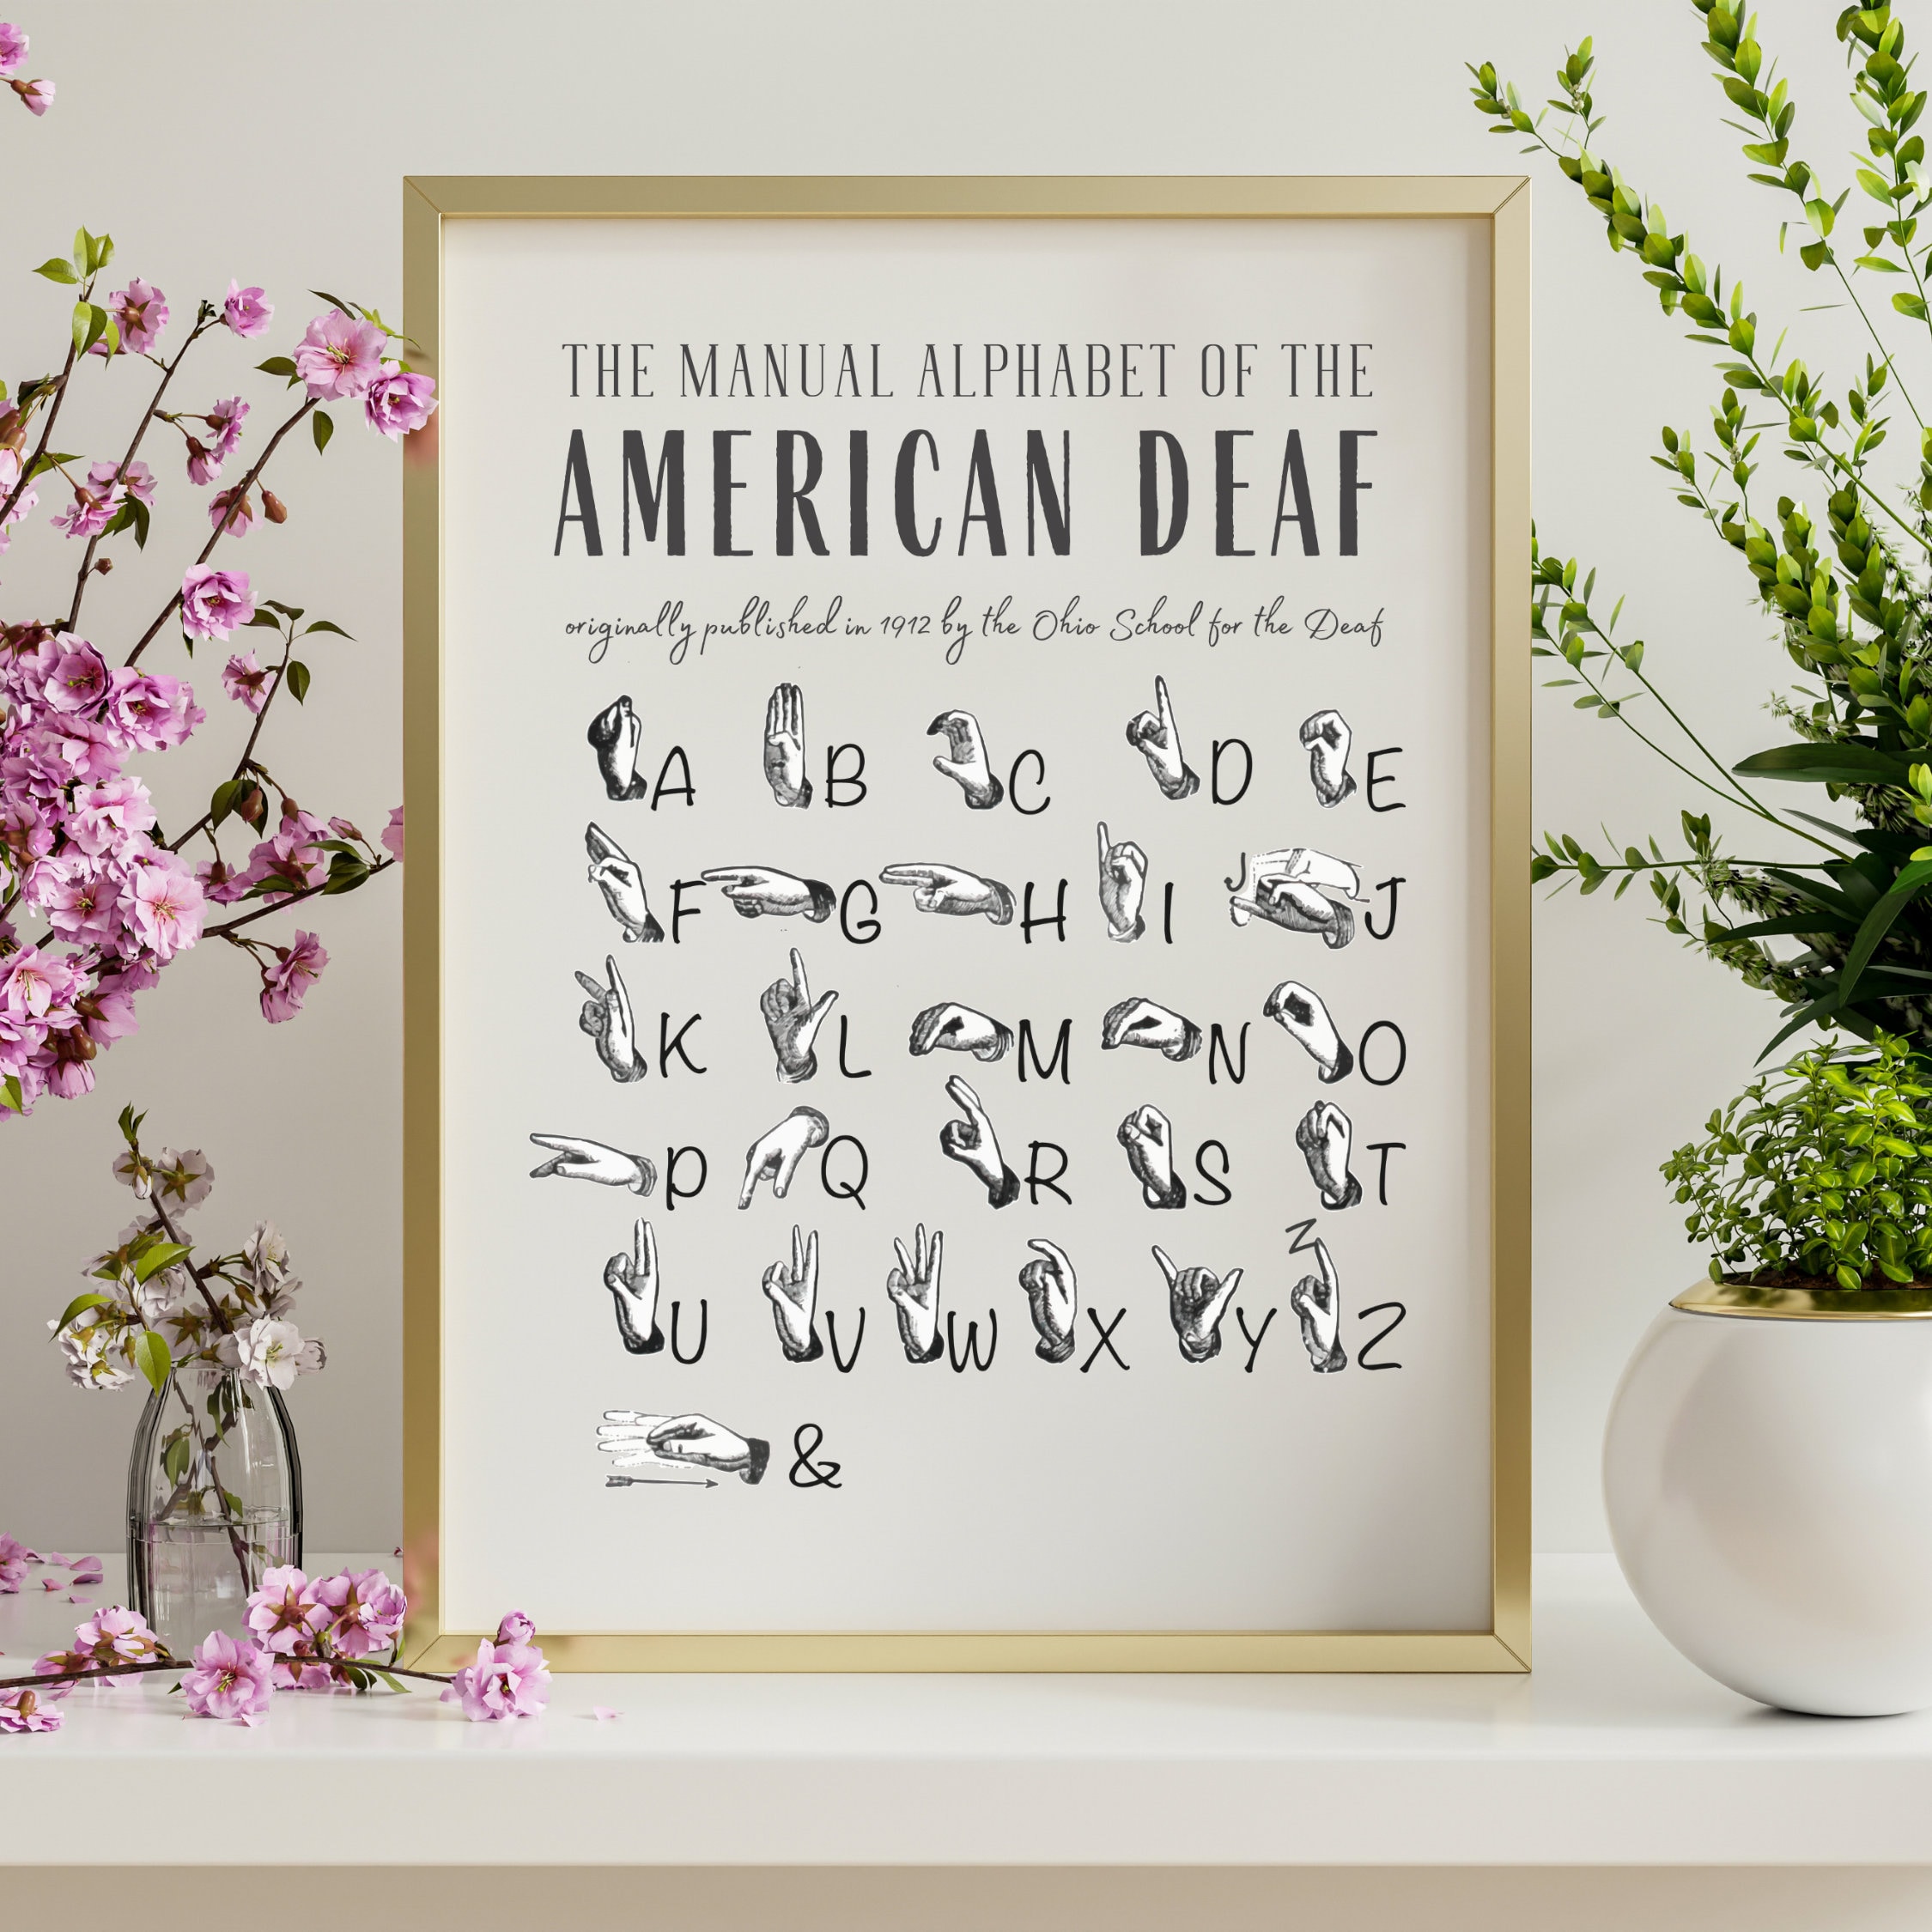 THE MANUAL ALPHABET OF THE
AMERICAN DEAF
originally published in 1912 by the Ohio School for the Deaf
A B C D E
F G H I J J
K L M N O
P Q R S T
Z
U V W X Y Z
&